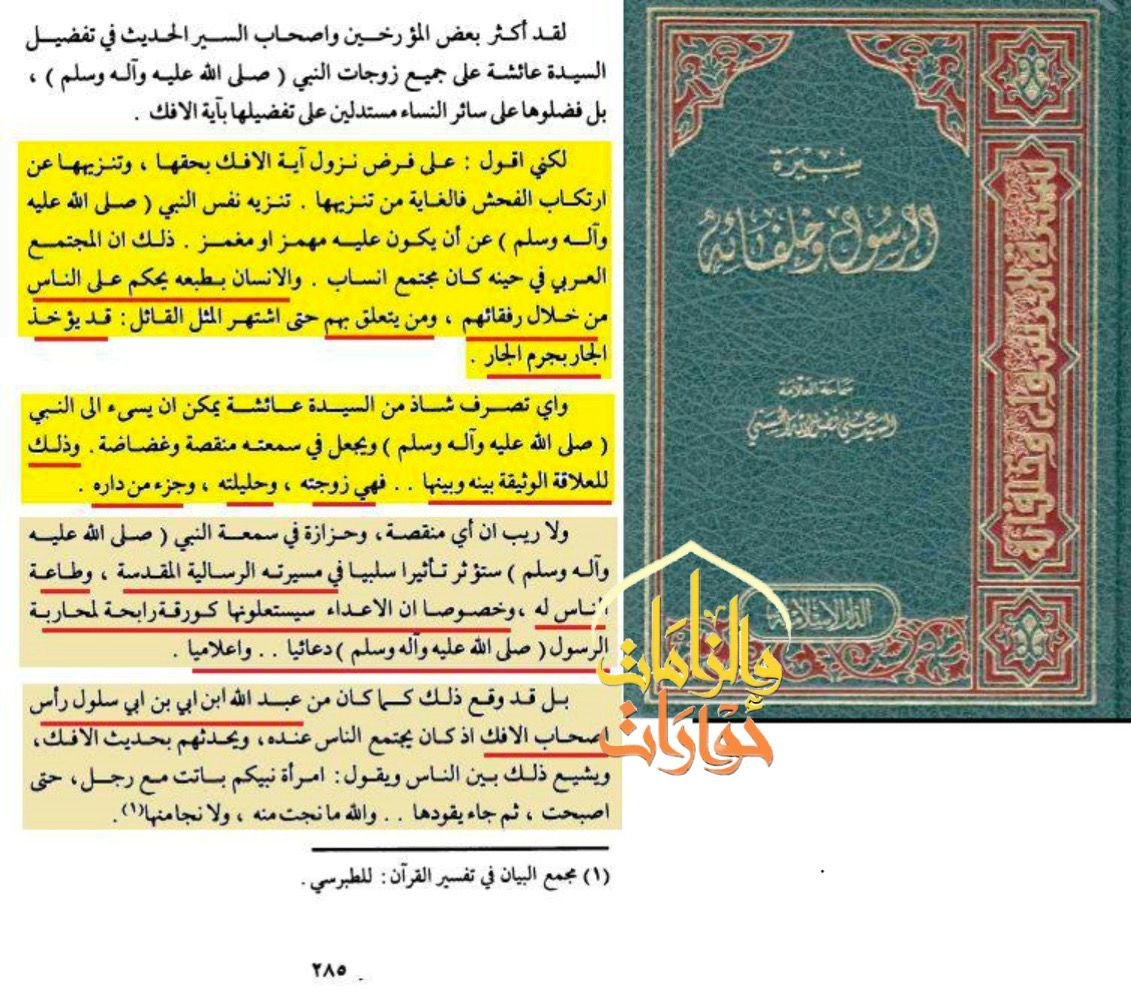 لقد أكثر بعض المؤرخين واصحاب السير الحديث في تفضيل
السيدة عائشة على جميع زوجات النبي ( صلى الله عليه وآله وسلم ) ،
بل فضلوها على سائر النساء مستدلين على تفضيلها بآية الافك .
لكني اقول : على فرض نزول آية الافك بحقها ، وتنزيهها عن
ارتكاب الفحش فالغاية من تنزيهها . تنزيه نفس النبي ( صلى الله عليه
وآله وسلم ) عن أن يكون عليه مهمز او مغمز . ذلك ان المجتمع
العربي في حينه كان مجتمع انساب . والانسان بطبعه يحكم على الناس
من خلال رفقائهم ، ومن يتعلق بهم حتى اشتهر المثل القائل : قد يؤخذ
الجار بجرم الجار .
واي تصرف شاذ من السيدة عائشة يمكن ان يسيء الى النبي
( صلى الله عليه وآله وسلم ) ويجعل في سمعته منقصة وغضاضة . وذلك
للعلاقة الوثيقة بينه وبينها . . فهي زوجته ، وحليلته ، وجزء من داره .
ولا ريب ان أي منقصة ، وحزازة في سمعة النبي ( صلى الله عليه
وآله وسلم ) ستؤثر تأثيرا سلبيا في مسيرته الرسالية المقدسة ، وطاعة
الناس له ، وخصوصا ان الاعداء سيستعلونها كورقة رابحة لمحاربة
الرسول ( صلى الله عليه وآله وسلم ) دعائيا . . واعلاميا .
بل قد وقع ذلك كما كان من عبد الله ابن ابي بن ابي سلول رأس
اصحاب الافك اذ كان يجتمع الناس عنده ، ويحدثهم بحديث الافك ،
ويشيع ذلك بين الناس ويقول : امرأة نبيكم باتت مع رجل ، حتى
اصبحت ، ثم جاء يقودها . . والله ما نجت منه ، ولا نجا منها (١) .
(١) مجمع البيان في تفسير القرآن : للطبرسي .
٢٨٥
سيرة
الرسول وخلفائه
سماحة العلامة
السيد علي فضل الله الحسني
الدار الإسلامية
سيرة الرسول وخلفائه
حوارات
والزامات